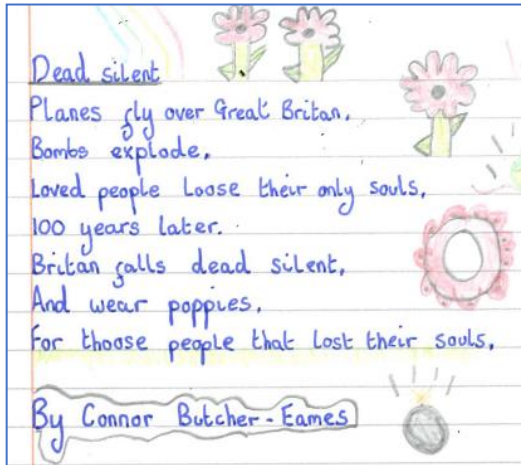 Dead silent
Planes fly over Great Britan,
Bombs explode,
Loved people Loose their only souls,
100 years later.
Britan falls dead silent,
And wear poppies,
For thoose people that lost their souls,
By Connor Butcher-Eames